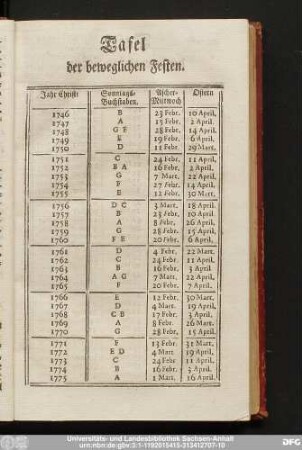 Tafel
der beweglichen Festen.
Jahr Christi Sonntags-Buchstaben. Ascher-Mittwoch Ostern
1746 B 23 Febr. 10 April.
1747 A 15 Febr. 2 April.
1748 G F 28 Febr. 14 April.
1749 E 19 Febr. 6 April.
1750 D 11 Febr. 29 Mart.
1751 C 24 Febr. 11 April,
1752 B A 16 Febr. 2 April.
1753 G 7 Mart. 22 April.
1754 F 27 Febr. 14 April,
1755 E 12 Febr. 30 Mart.
1756 D C 3 Mart. 18 April.
1757 B 23 Febr. 10 April.
1758 A 8 Febr. 26 April.
1759 G 28 Febr. 15 April.
1760 F E 20 Febr. 6 April.
1761 D 4 Febr. 22 Mart.
1762 C 24 Febr. 11 April.
1763 B 16 Febr. 3 April
1764 A G 7 Mart. 22 April.
1765 F 20 Febr. 7 April.
1766 E 12 Febr. 30 Mart.
1767 D 4 Mart. 19 April,
1768 C B 17 Febr. 3 April.
1769 A 8 Febr. 26 Mart.
1770 G 28 Febr. 15 April.
1771 F 13 Febr. 31 Mart.
1772 E D 4 Mart. 19 April,
1773 C 24 Febr. 11 April.
1774 B 16 Febr. 3 April.
1775 A 1 Mart. 16 April.
Universitäts- und Landesbibliothek Sachsen-Anhalt
urn:nbn:de:gbv:3:1-1192015415-313412707-10
DFG